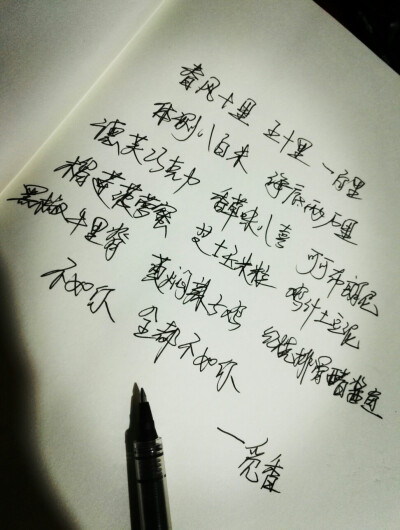 春风十里 五十里 一百里
体测八百米 海底两万里
德芙巧克力 香草味八喜 可可布朗尼
榴莲菠萝蜜 芝士玉米粒 鸡汁土豆泥
黑椒牛里脊 黄焖辣子鸡 红烧排骨
不如你 全都不如你